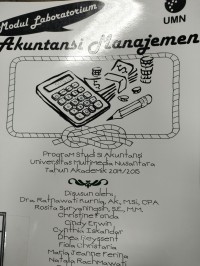 Modul Laboratorium
UMN
Akuntansi Manajemen
Program Studi Akuntansi
Universitas Multimedia Nusantara
Tahun Akademik 2014/2015
Disusun oleh:
Dra Ratnawati Kurnia, Ak, M.Si, CPA
Rosita Suryaningsih, SE., M.M.
Christine Fonda
Cindy Erwin
Cynthia Iskandar
Dhea Heyssent
Fida Christaria
Maria Jeanne Ferina
Natalia Rachmawati